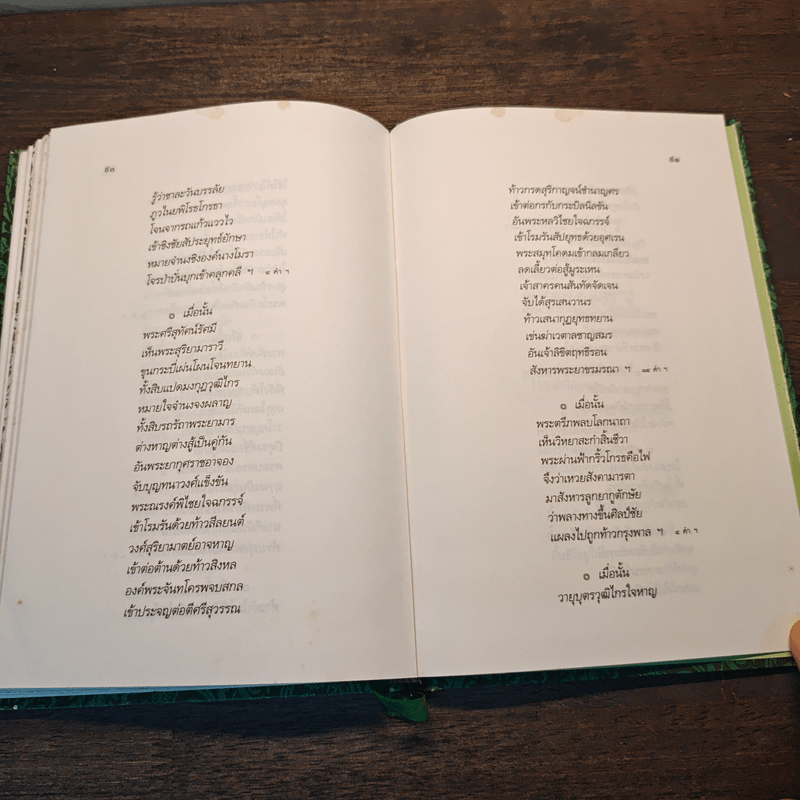 ๕๐
รู้ว่าชาละวันบรรลัย
ภูวไนยพิโรธโกรธา
โจนจากรถแก้วแววไว
เข้าชิงชัยสัประยุทธ์ยักษา
หมายจำนงชิงองค์นางโมรา
โจรป่าบั่นบุกเข้าคลุกคลี ฯ ๔ คำ ฯ
๏ เมื่อนั้น
พระศรีสุทัศน์รัศมี
เห็นพระสุริยามาราวี
ขุนกระบี่เผ่นโผนโจนทยาน
ทั้งสิบแปดมงกุฎวุฒิไกร
หมายใจจำนงจงผลาญ
ทั้งสิบรถรัถาพระยามาร
ต่างหาญต่างสู้เป็นคู่กัน
อันพระยากุศราชอาจอง
จับบุญทนาวงศ์แข็งขัน
พระณรงค์พิไชยใจฉกรรจ์
เข้าโรมรันด้วยท้าวสีลยนต์
วงศ์สุริยามาตย์อาจหาญ
เข้าต่อต้านด้วยท้าวสิงหล
องค์พระจันทโครพจบสกล
เข้าประจญต่อตีศรีสุวรรณ
๕๑
ท้าวกรดสุริกาญจน์ชำนาญศร
เข้าต่อกรกับกระบิลนิลขัน
อันพระหลวิไชยใจฉกรรจ์
เข้าโรมรันสัปยุทธด้วยอุศเรน
พระสมุทโคดมเข้ากลมเกลียว
ลดเลี้ยวต่อสู้มูระเหน
เจ้าสาครคนสันทัดจัดเจน
จับได้สุรเสนวานร
ท้าวเสนากุฎยุทธทยาน
เข่นฆ่าเวตาลชาญสมร
อันเจ้าลิขิตฤทธิรอน
สังหารพระยาขรมรณา ฯ ๑๔ คำ ฯ
๏ เมื่อนั้น
พระตรีภพลบโลกนาถา
เห็นวิทยาสะกำสิ้นชีวา
พระผ่านฟ้ากริ้วโกรธคือไฟ
จึงว่าเหวยสังคามารตา
มาสังหารลูกยากูตักษัย
ว่าพลางทางขึ้นศิลป์ชัย
แผลงไปถูกท้าวกรุงพาล ฯ ๔ คำ ฯ
๏ เมื่อนั้น
วายุบุตรวุฒิไกรใจหาญ